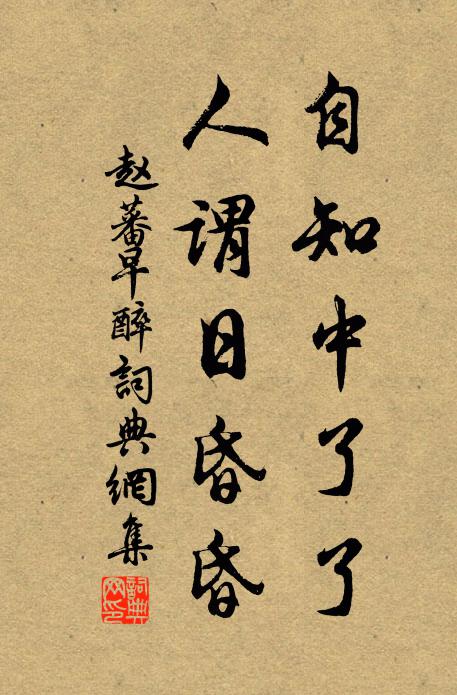 自知中了了
人谓日昏昏
赵蕃早醉詞典網集
詞典网印